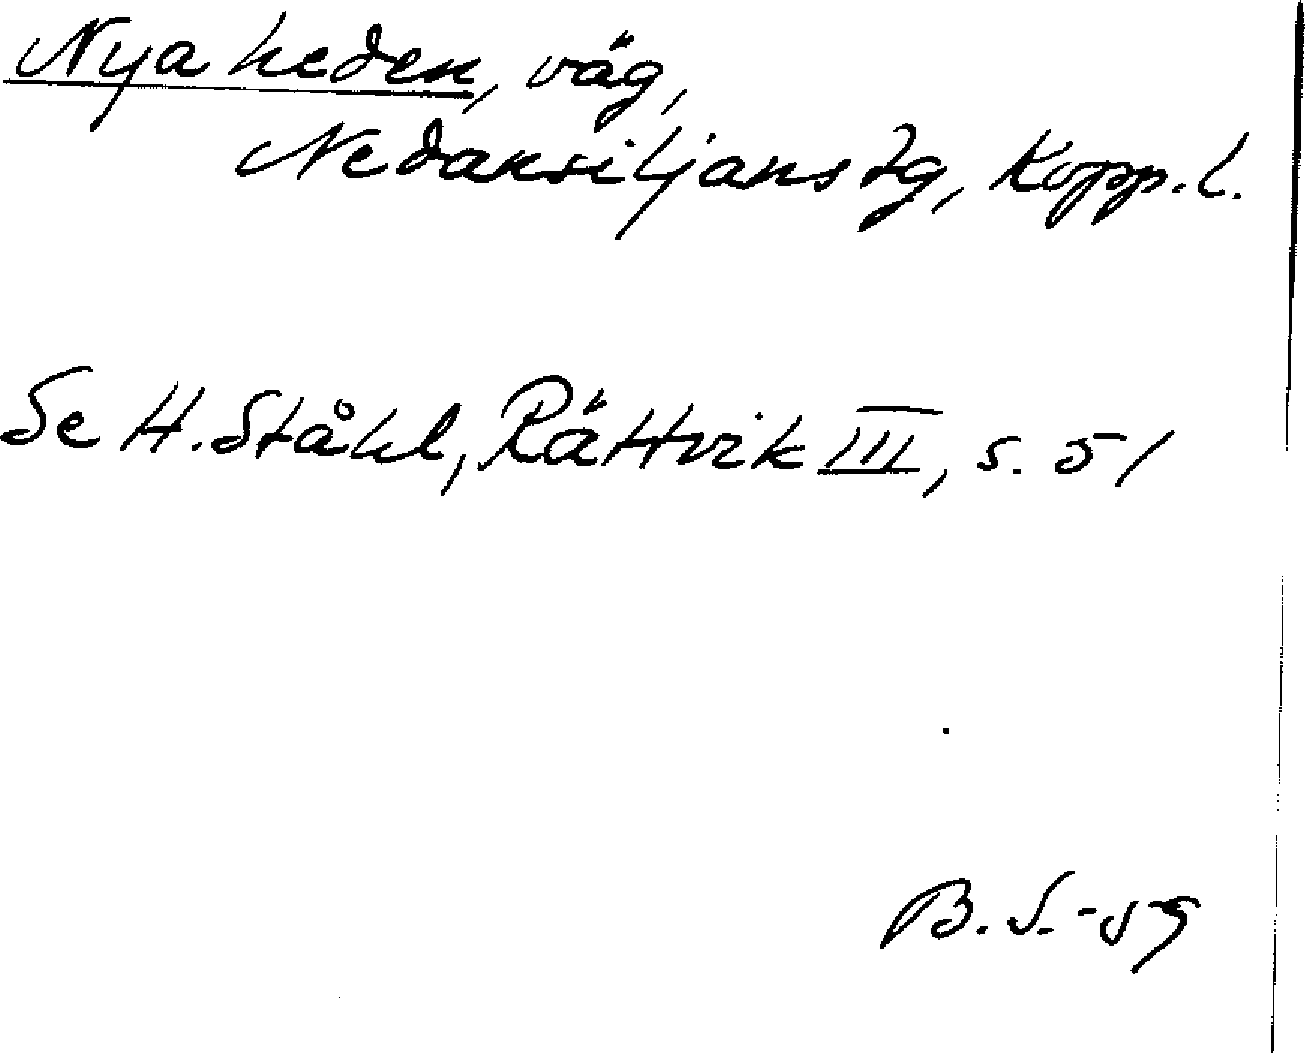 Nya heden, väg,
Nedansiljans tg, Kopp. l.
Se H. Ståhl, Rättvik III, s. 51
B. S. -59